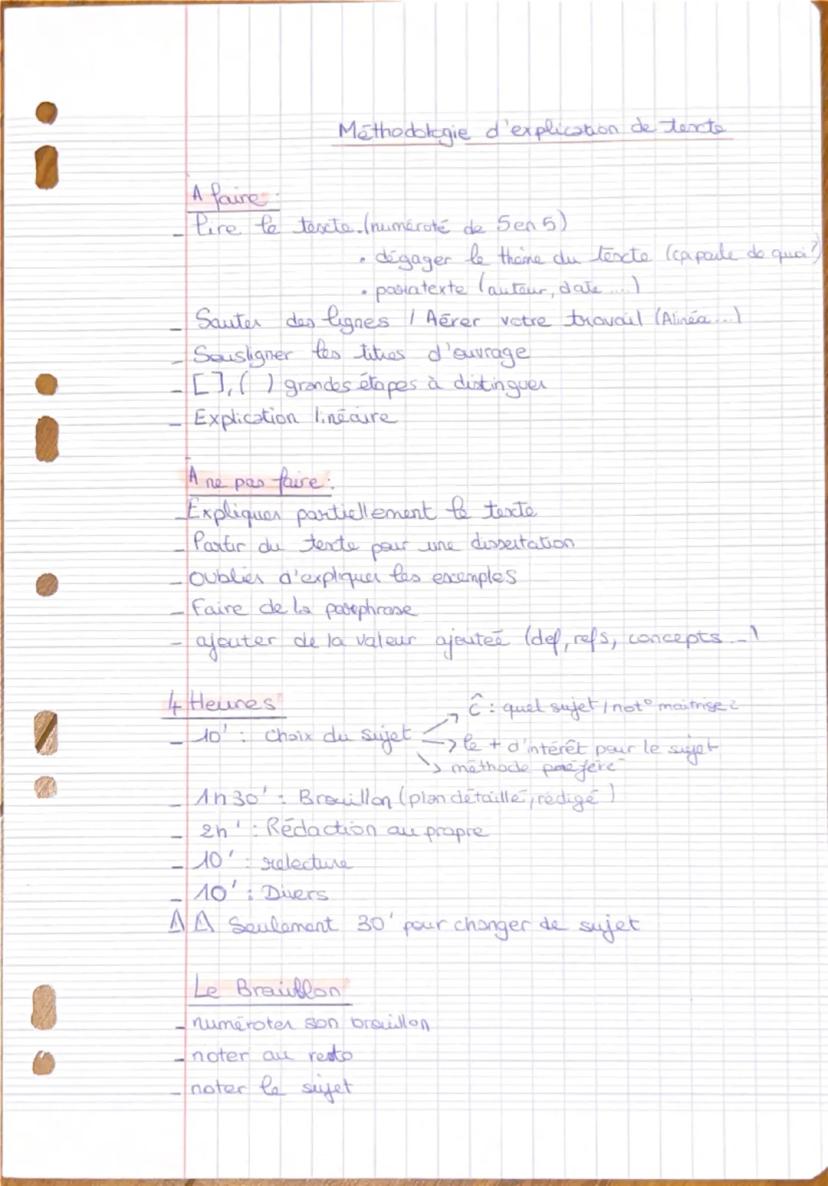 Méthodologie d'explication de texte
A faire :
- lire le texte. (numéroté de 5 en 5)
• dégager le thème du texte (ça parle de quoi ?)
• paratexte (auteur, date ...)
- Sauter des lignes / Aérer votre travail (Alinéa...)
- Sousligner les titres d'ouvrage
- [ ], ( ) grandes étapes à distinguer
- Explication linéaire
A ne pas faire :
- Expliquer partiellement le texte
- Partir du texte pour une dissertation
- oublier d'expliquer les exemples
- Faire de la paraphrase
- ajouter de la valeur ajoutée (def, refs, concepts ...)
4 Heures
- 10' : choix du sujet -> ĉ : quel sujet / not° maitrisé ?
-> le + d'intérêt pour le sujet
-> méthode préféré
- 1h30' : Brouillon (plan détaillé, rédigé)
- 2h' : Rédaction au propre
- 10' : relecture
- 10' : Divers
Seulement 30' pour changer de sujet
Le Brouillon
- numéroter son brouillon
- noter au recto
- noter le sujet